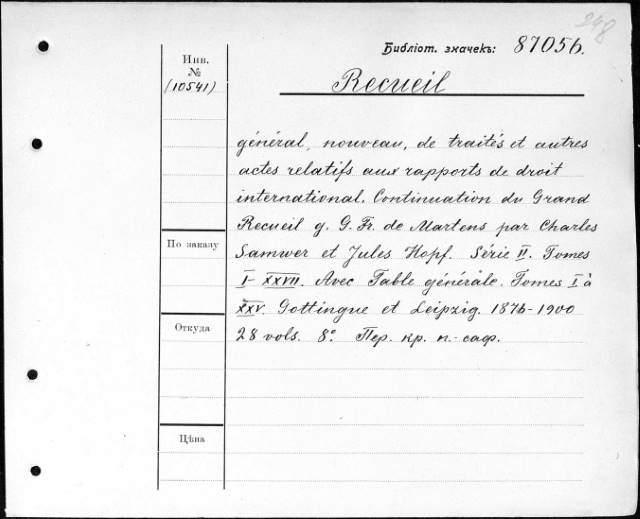 248
Библіот. значекъ: 87056.
Инв.
№
(10541)
Recueil
général, nouveau, de traités et autres
actes relatifs aux rapports de droit
international. Continuation du Grand
Recueil g. G. Fr. de Martens par Charles
По заказу
Samwer et Jules Hopf. Série II. Tomes
I-XXVII. Avec Table générale. Tomes I à
XXV. Gottingue et Leipzig. 1876-1900
Откуда
28 vols. 8°. Пер. кр. п.-саф.
Цѣна